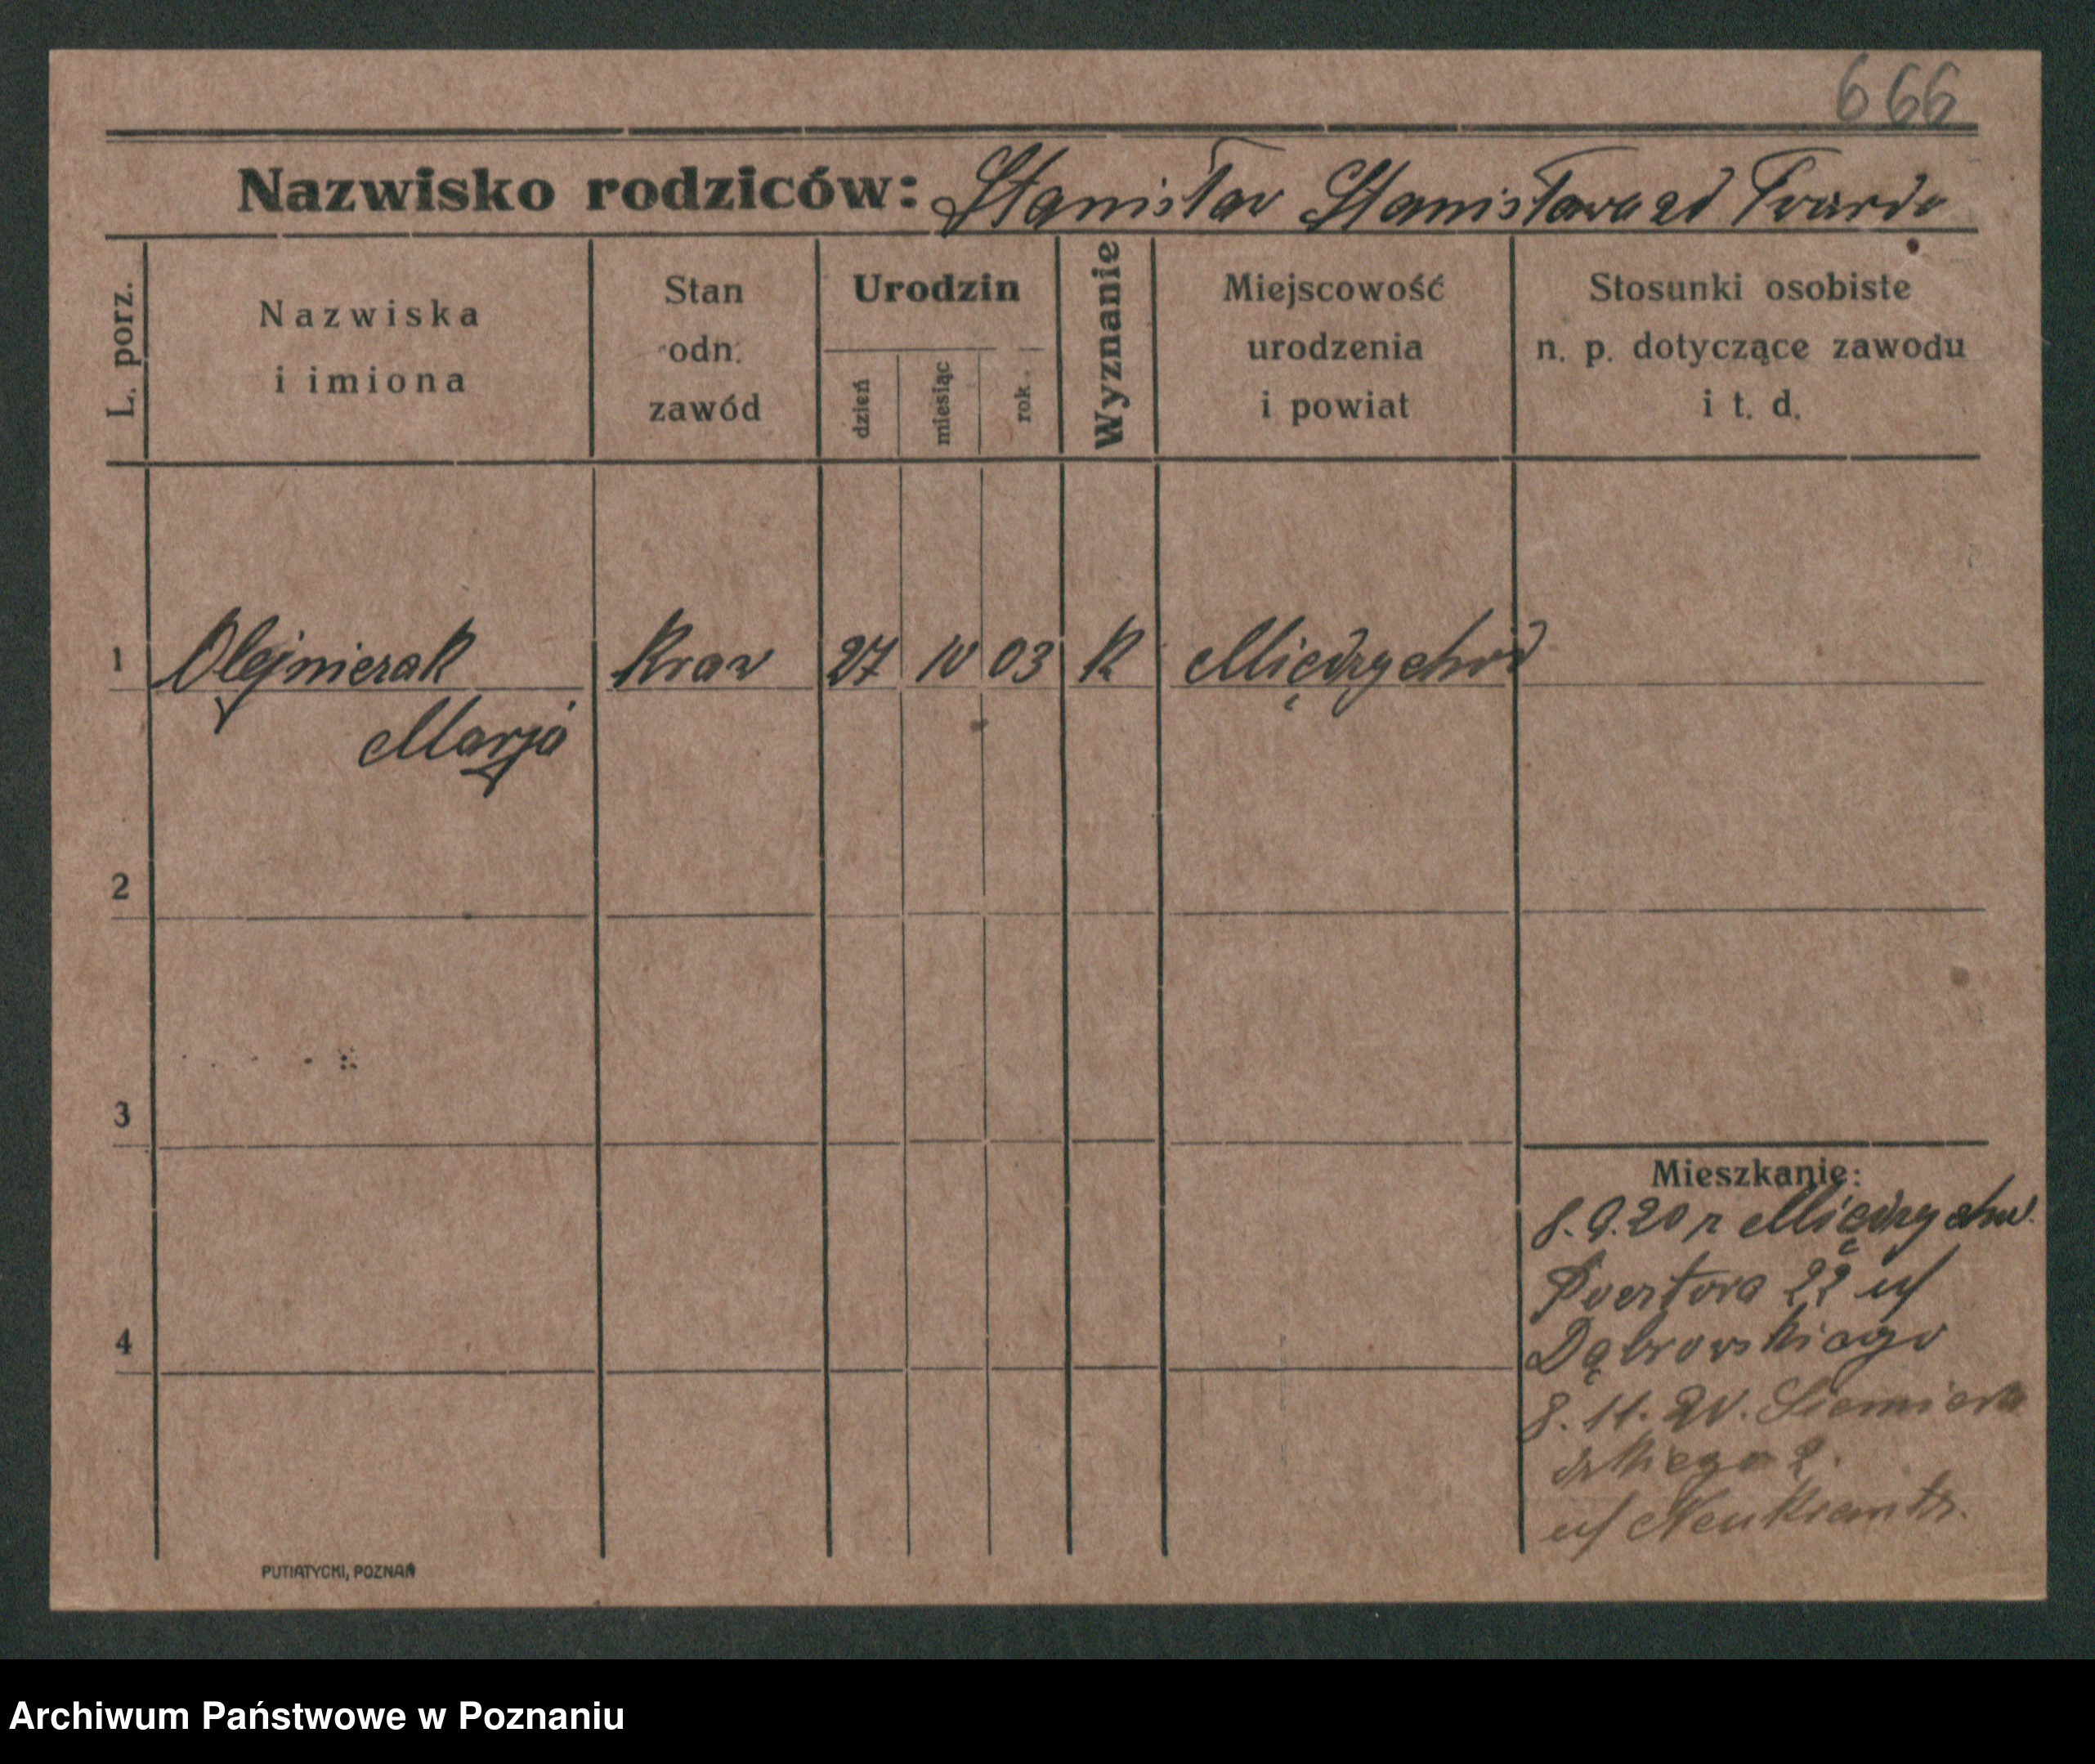 666
Nazwisko rodziców: Stanisław Stanisława zd Twarda
L. porz.
Nazwiska
i imiona
Stan
odn.
zawód
Urodzin
dzień
miesiąc
rok
Wyznanie
Miejscowość
urodzenia
i powiat
Stosunki osobiste
n. p. dotyczące zawodu
i t. d.
1 Olejniczak Kraw 27 IV 03 K Międzychód
Marja
2
3
4
Mieszkanie:
8.9.20 z Międzychw.
22 u/
Dąbrowskiego
8.11.20.
skiego 2.
u/
PUTIATYCKI, POZNAŃ
Archiwum Państwowe w Poznaniu